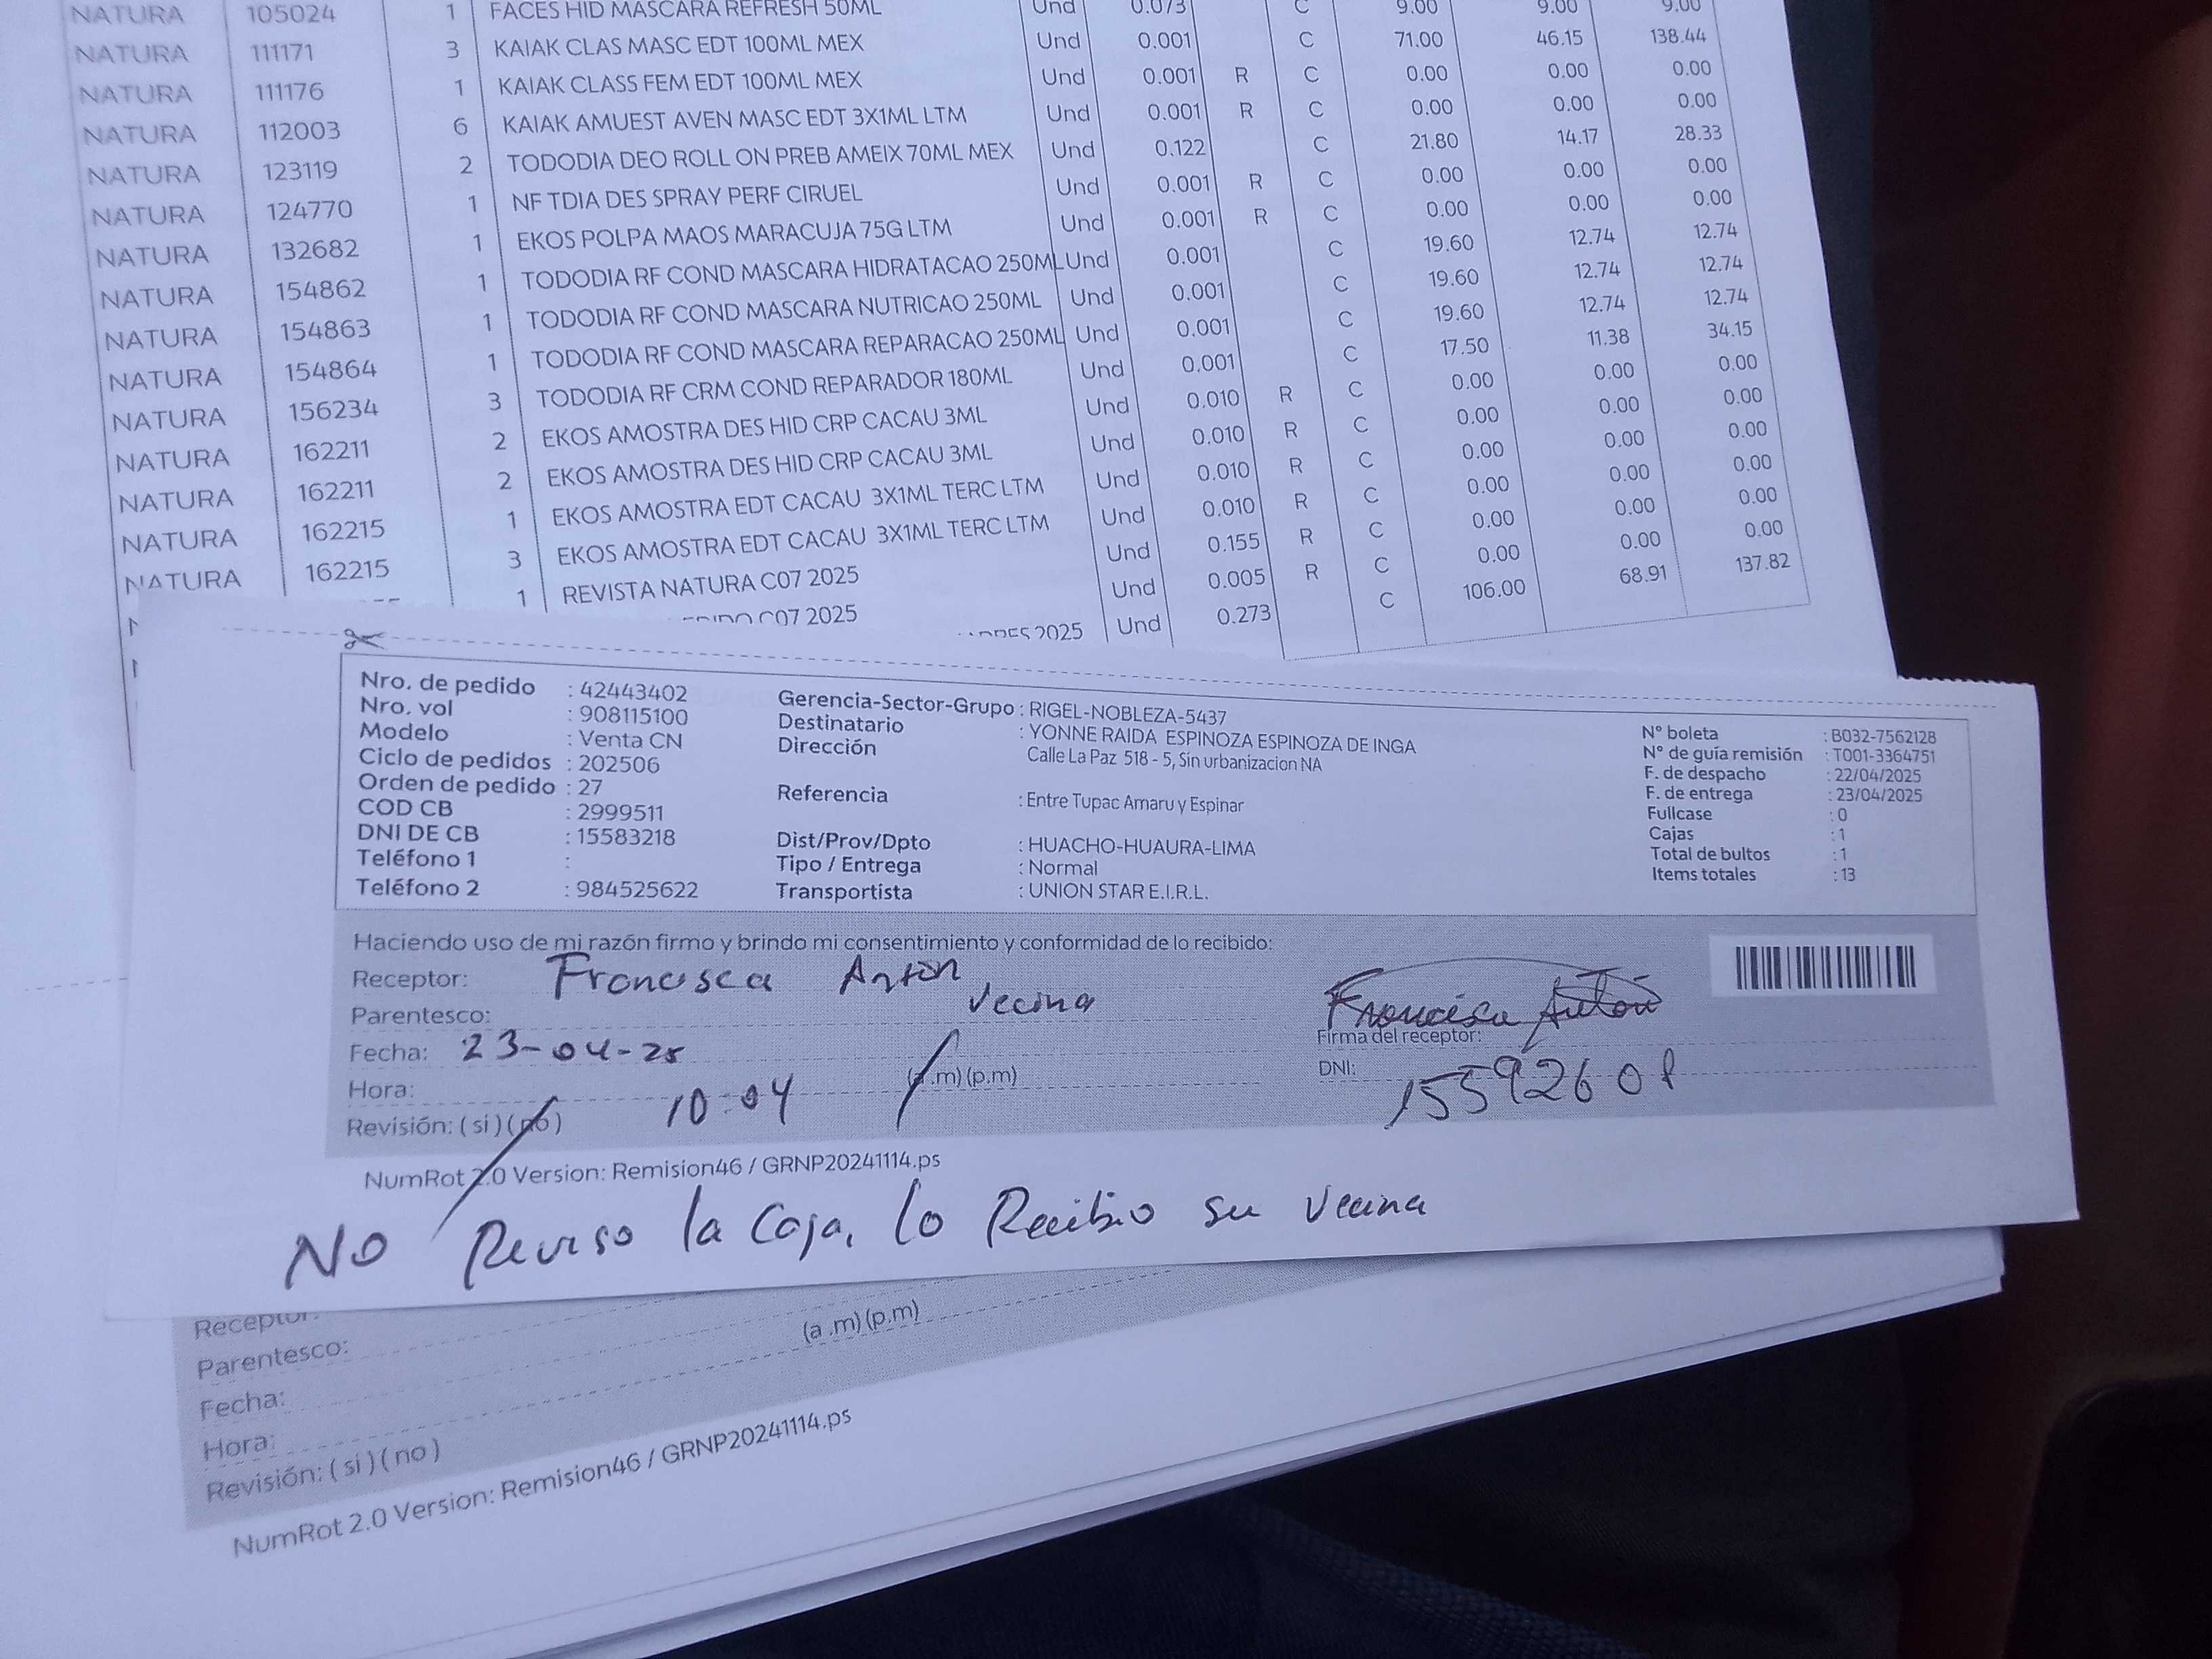 NATURA 105024 1 FACES HID MASCARA REFRESH 50ML Und 0.073 C 9.00 9.00 9.00
NATURA 111171 3 KAIAK CLAS MASC EDT 100ML MEX Und 0.001 C 71.00 46.15 138.44
NATURA 111176 1 KAIAK CLASS FEM EDT 100ML MEX Und 0.001 R C 0.00 0.00 0.00
NATURA 112003 6 KAIAK AMUEST AVEN MASC EDT 3X1ML LTM Und 0.001 R C 0.00 0.00 0.00
NATURA 123119 2 TODODIA DEO ROLL ON PREB AMEIX 70ML MEX Und 0.122 C 21.80 14.17 28.33
NATURA 124770 1 NF TDIA DES SPRAY PERF CIRUEL Und 0.001 R C 0.00 0.00 0.00
NATURA 132682 1 EKOS POLPA MAOS MARACUJA 75G LTM Und 0.001 R C 0.00 0.00 0.00
NATURA 154862 1 TODODIA RF COND MASCARA HIDRATACAO 250ML Und 0.001 C 19.60 12.74 12.74
NATURA 154863 1 TODODIA RF COND MASCARA NUTRICAO 250ML Und 0.001 C 19.60 12.74 12.74
NATURA 154864 1 TODODIA RF COND MASCARA REPARACAO 250ML Und 0.001 C 19.60 12.74 12.74
NATURA 156234 3 TODODIA RF CRM COND REPARADOR 180ML Und 0.001 C 17.50 11.38 34.15
NATURA 162211 2 EKOS AMOSTRA DES HID CRP CACAU 3ML Und 0.010 R C 0.00 0.00 0.00
NATURA 162211 2 EKOS AMOSTRA DES HID CRP CACAU 3ML Und 0.010 R C 0.00 0.00 0.00
NATURA 162215 1 EKOS AMOSTRA EDT CACAU 3X1ML TERC LTM Und 0.010 R C 0.00 0.00 0.00
NATURA 162215 3 EKOS AMOSTRA EDT CACAU 3X1ML TERC LTM Und 0.010 R C 0.00 0.00 0.00
1 REVISTA NATURA C07 2025 Und 0.155 R C 0.00 0.00 0.00
C07 2025 Und 0.005 R C 0.00 0.00 0.00
2025 Und 0.273 C 106.00 68.91 137.82
Nro. de pedido : 42443402
Nro. vol : 908115100
Modelo : Venta CN
Ciclo de pedidos : 202506
Orden de pedido : 27
COD CB : 2999511
DNI DE CB : 15583218
Teléfono 1 :
Teléfono 2 : 984525622
Gerencia-Sector-Grupo : RIGEL-NOBLEZA-5437
Destinatario : YONNE RAIDA ESPINOZA ESPINOZA DE INGA
Dirección Calle La Paz 518 - 5, Sin urbanizacion NA
Referencia : Entre Tupac Amaru y Espinar
Dist/Prov/Dpto : HUACHO-HUAURA-LIMA
Tipo / Entrega : Normal
Transportista : UNION STAR E.I.R.L.
N° boleta : B032-7562128
N° de guía remisión : T001-3364751
F. de despacho : 22/04/2025
F. de entrega : 23/04/2025
Fullcase : 0
Cajas : 1
Total de bultos : 1
Items totales : 13
Haciendo uso de mi razón firmo y brindo mi consentimiento y conformidad de lo recibido:
Receptor: Francisca Anton
Parentesco: Vecina
Fecha: 23-04-25
Hora: 10:04 (a.m) (p.m)
Revisión: ( si ) ( no )
Francisca Anton
Firma del receptor:
DNI: 15592608
NumRot 2.0 Version: Remision46 / GRNP20241114.ps
NO Reviso la Caja, lo Recibio su Vecina
Receptor:
Parentesco:
Fecha:
Hora: (a .m) (p.m)
Revisión: ( si ) ( no )
NumRot 2.0 Version: Remision46 / GRNP20241114.ps